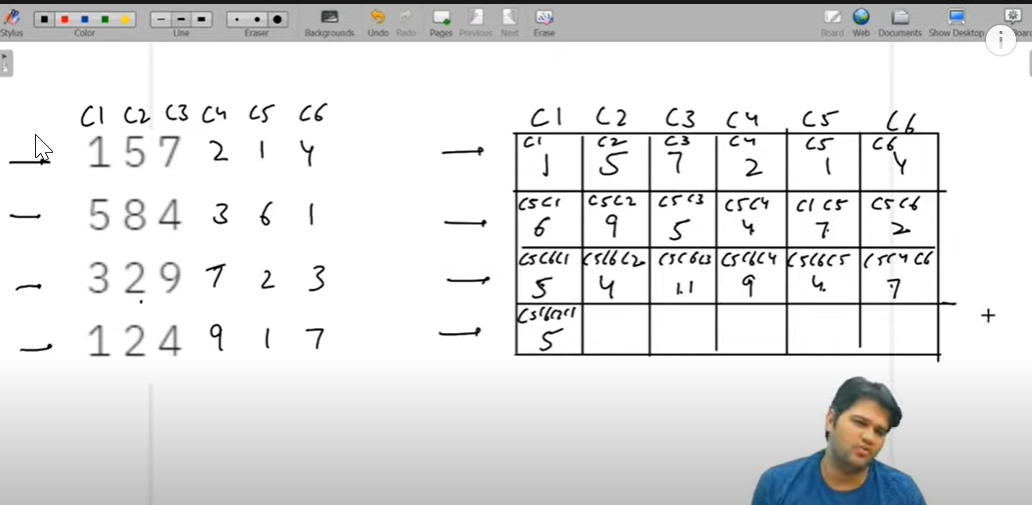 Stylus Color Line Eraser Backgrounds Undo Redo Pages Previous Next Erase Board Web Documents Show Desktop Board
C1 C2 C3 C4 C5 C6
1 5 7 2 1 4
5 8 4 3 6 1
3 2 9 7 2 3
1 2 4 9 1 7
C1 C2 C3 C4 C5 C6
C1 C2 C3 C4 C5 C6
1 5 7 2 1 4
C5C1 C5C2 C5C3 C5C4 C1C5 C5C6
6 9 5 4 7 2
C5C6C1 C5C6C2 C5C6C3 C5C6C4 C5C6C5 C5C4C6
5 4 11 9 4 7
5
+